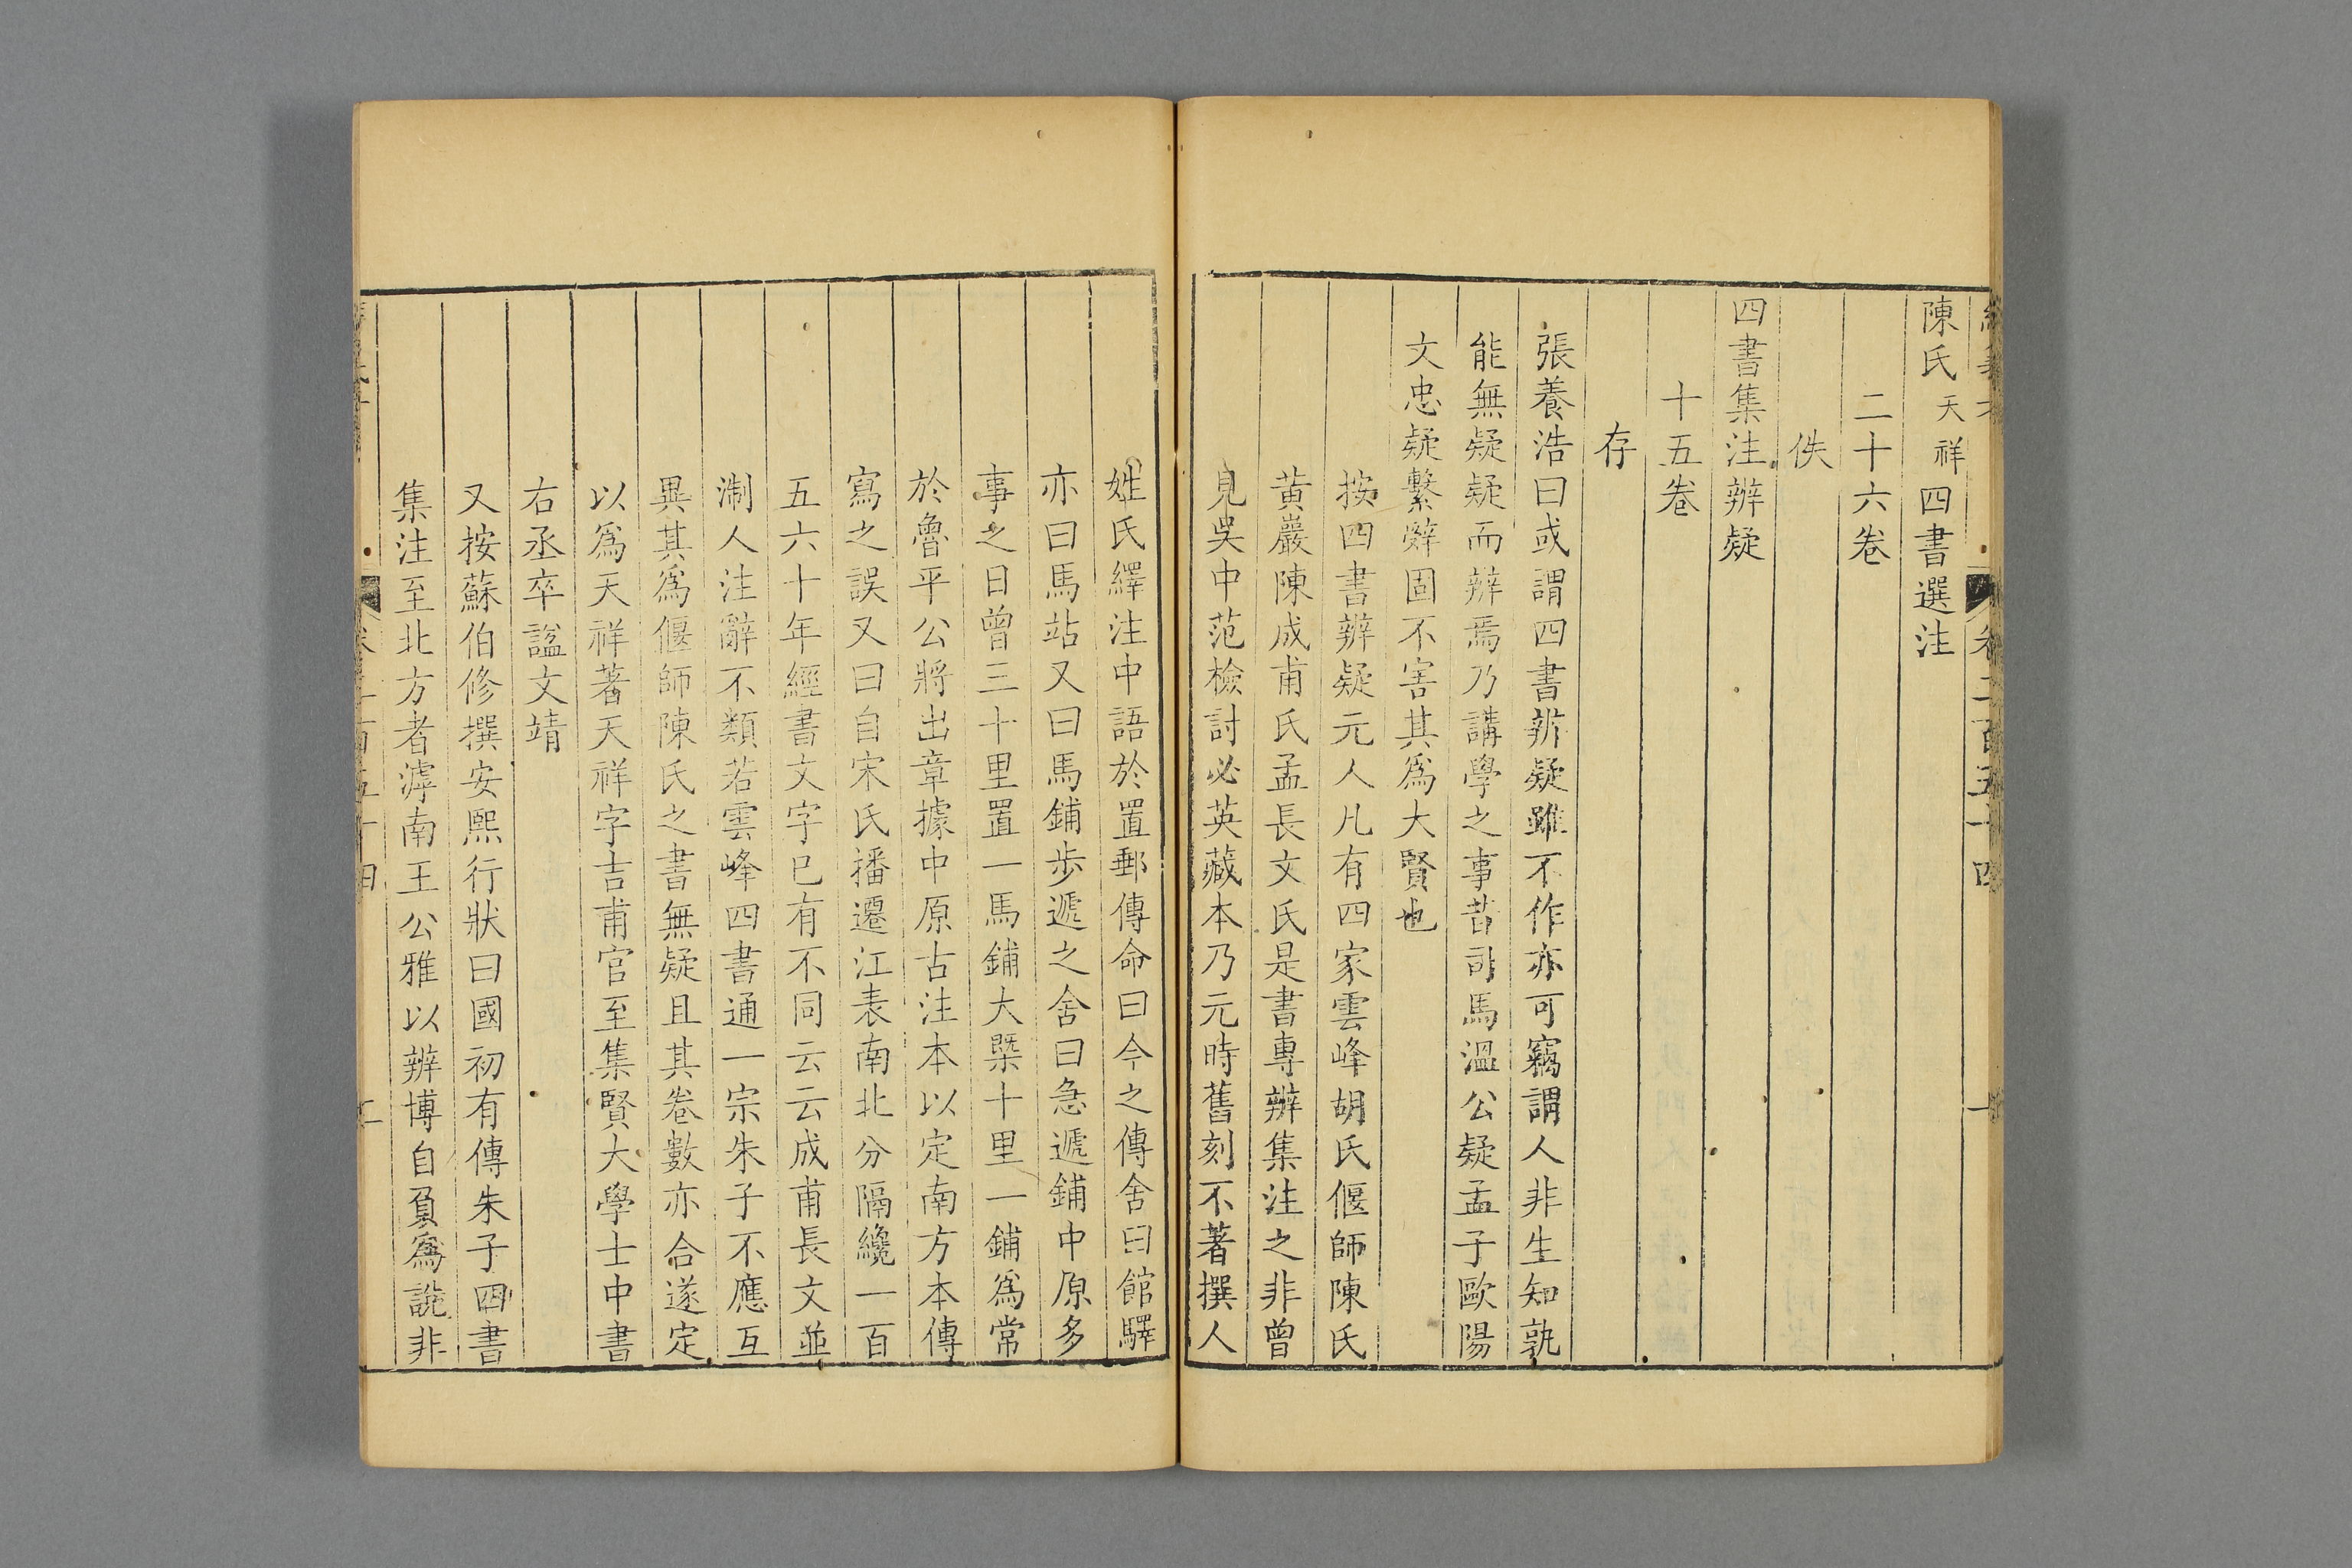 陳氏天祥四書選注
二十六卷
佚
四書集注辨疑
十五卷
存
張養浩曰或謂四書辨疑雖不作亦可竊謂人非生知孰
能無疑疑而辨焉乃講學之事昔司馬溫公疑孟子歐陽
文忠疑繫辭固不害其爲大賢也
按四書辨疑元人凡有四家雲峰胡氏偃師陳氏
黃巖陳成甫氏孟長文氏是書專辨集注之非曾
見吳中范檢討必英藏本乃元時舊刻不著撰人
姓氏繹注中語於置郵傳命曰今之傳舍曰館驛
亦曰馬站又曰馬鋪步遞之舍曰急遞鋪中原多
事之日曾三十里置一馬鋪大槩十里一鋪爲常
於魯平公將出章據中原古注本以定南方本傳
寫之誤又曰自宋氏播遷江表南北分隔纔一百
五六十年經書文字已有不同云云成甫長文並
淛人注辭不類若雲峰四書通一宗朱子不應互
異其爲偃師陳氏之書無疑且其卷數亦合遂定
以爲天祥著天祥字吉甫官至集賢大學士中書
右丞卒諡文靖
又按蘇伯修撰安熙行狀曰國初有傳朱子四書
集注至北方者滹南王公雅以辨博自負爲說非